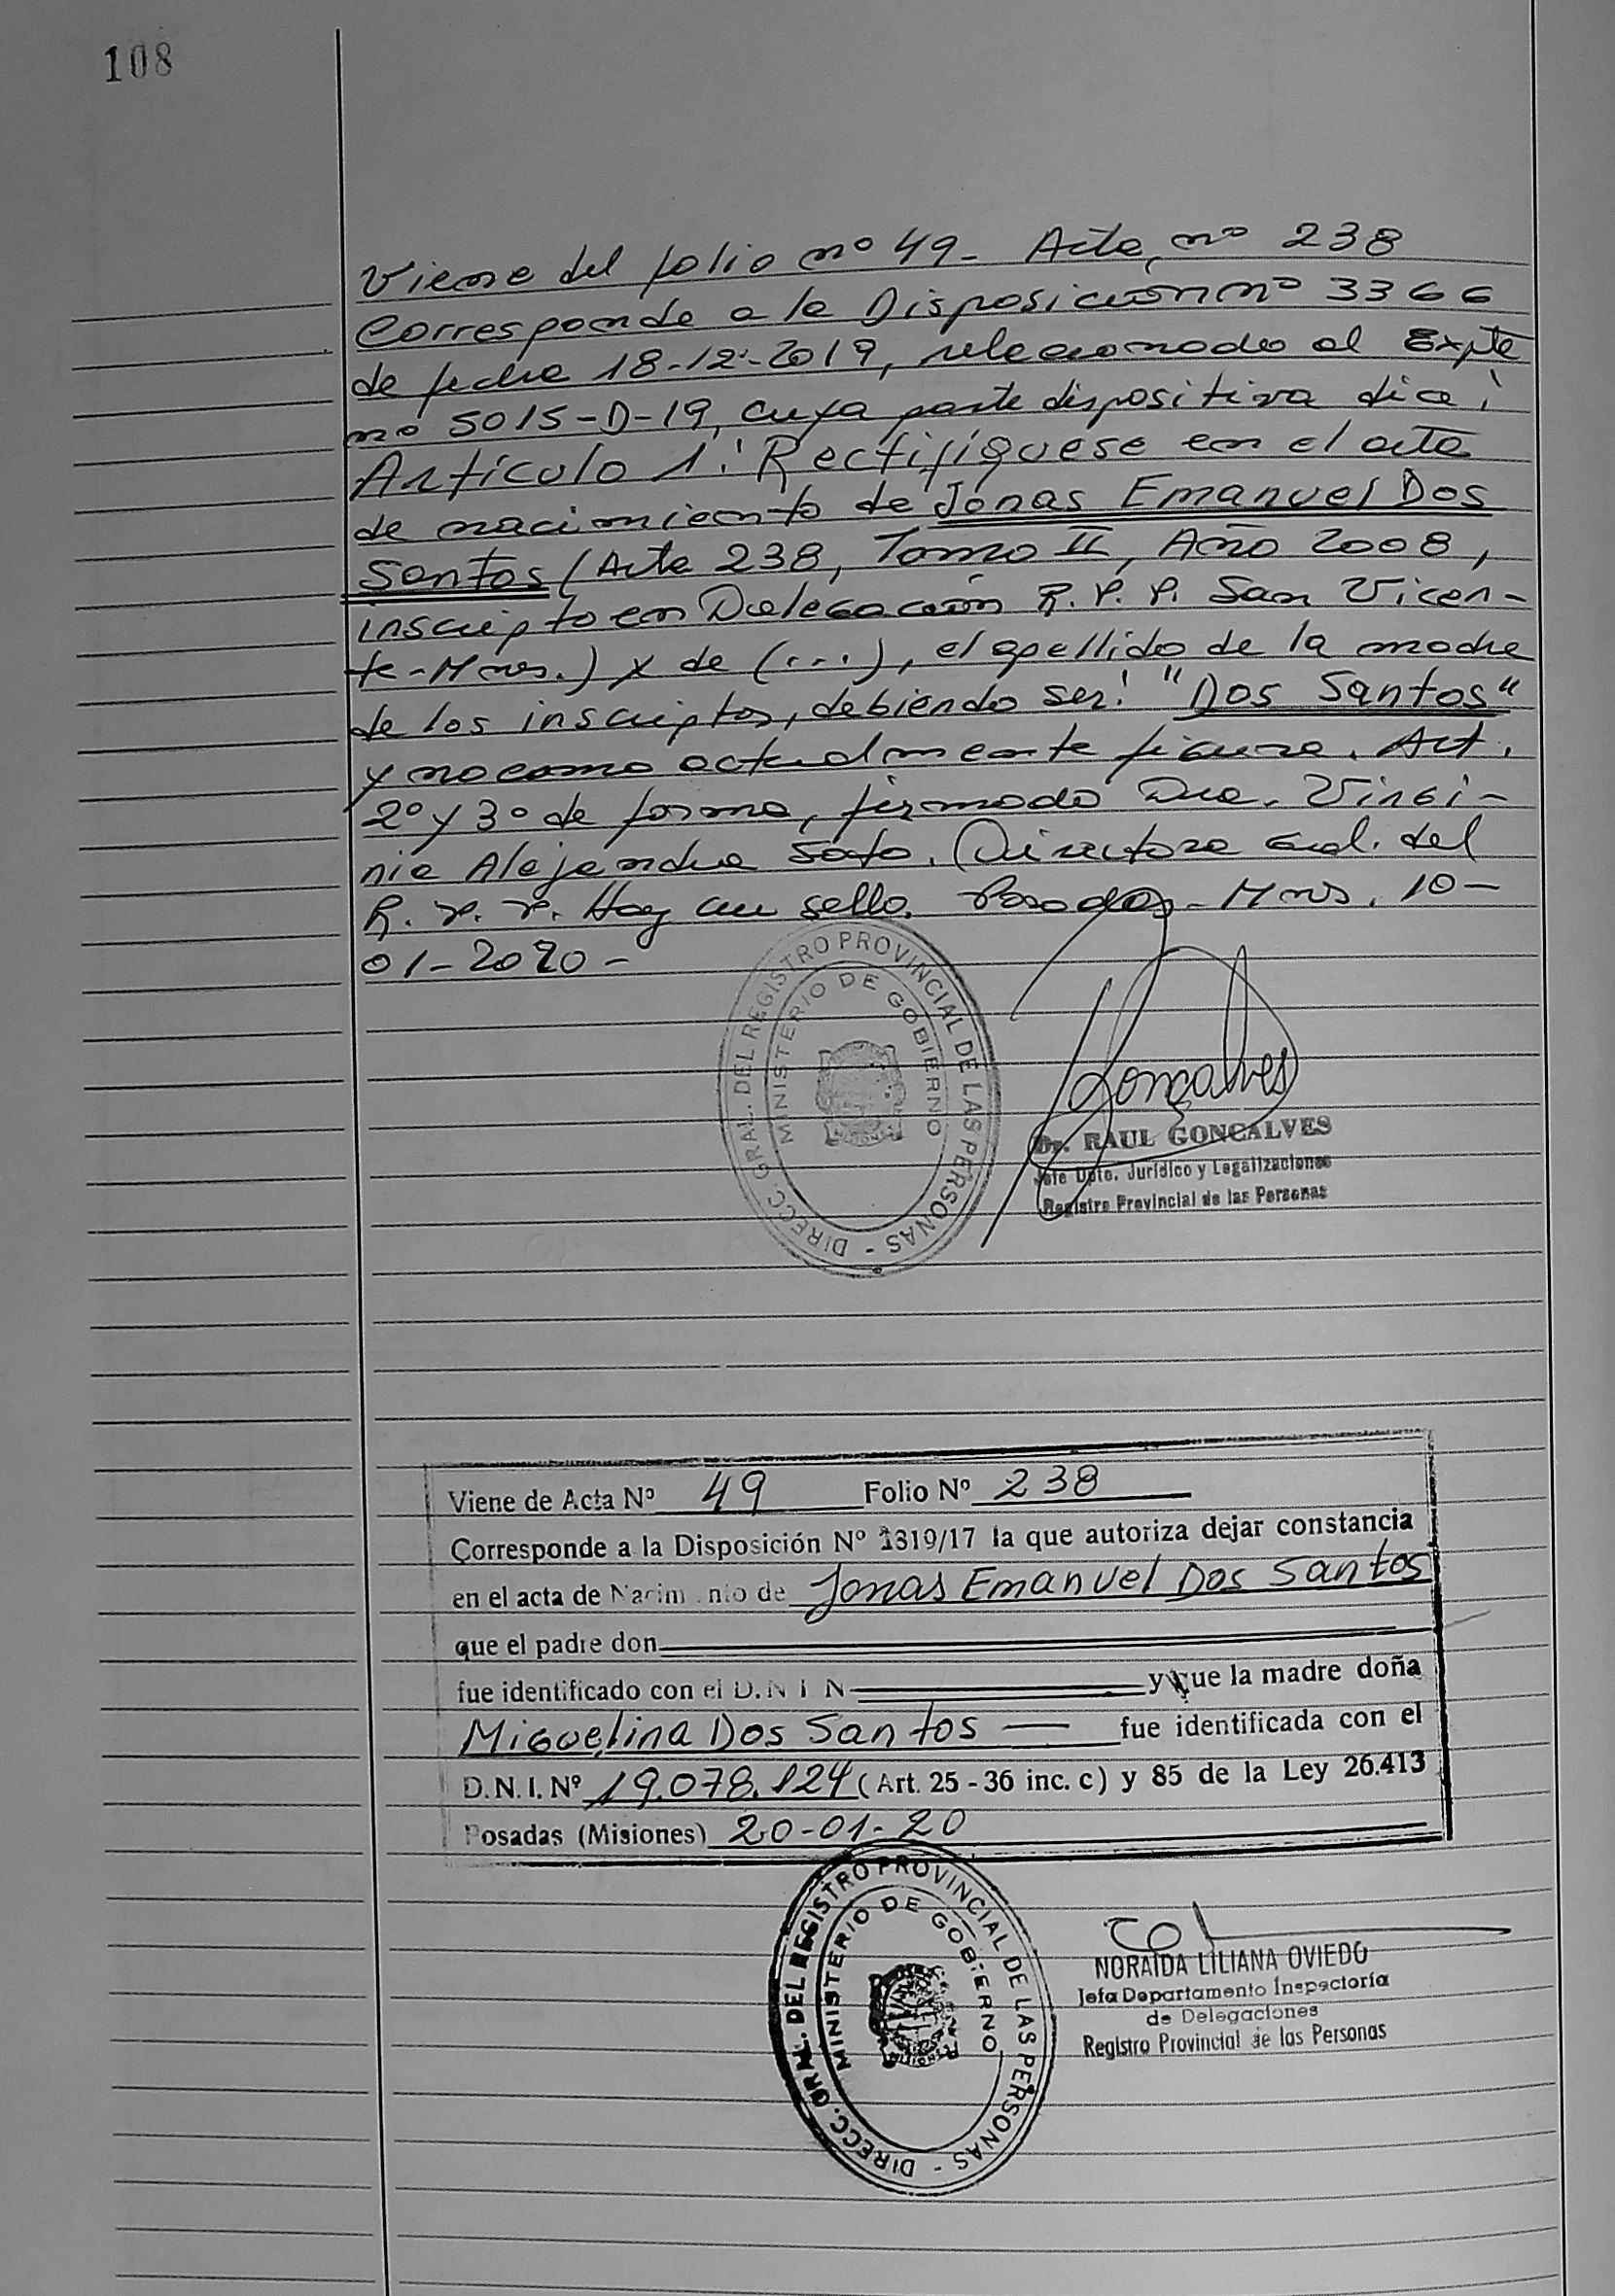 108
Viene del folio nº 49- Acta, nº 238
Corresponde a la Disposición nº 3366
de fecha 18-12-2019, relacionado al Expte
nº 5015-D-19, cuya parte dispositiva dice:
Artículo 1: Rectifíquese en el acta
de nacimiento de Jonas Emanuel Dos
Santos (Acta 238, Tomo II, Año 2008,
inscripto en Delegación R.P.P. San Vicen-
te-Mnes.) y de (...), el apellido de la madre
de los inscriptos, debiendo ser: "Dos Santos"
y no como actualmente figura. Art.
2º y 3º de forma, firmado Dra. Virgi-
nia Alejandra Soto. (Directora Gral. del
R.P.P. Hay un sello. Posadas- Mnes. 10-
01-2020-
DIRECC. GRAL. DEL REGISTRO PROVINCIAL DE LAS PERSONAS -
MINISTERIO DE GOBIERNO
Gonçalves
Dr. RAUL GONÇALVES
Jefe Dpto. Jurídico y Legalizaciones
Registro Provincial de las Personas
Viene de Acta Nº 49 Folio Nº 238
Corresponde a la Disposición Nº 1319/17 la que autoriza dejar constancia
en el acta de Nacimiento de Jonas Emanuel Dos Santos
que el padre don
fue identificado con el D.N I N y que la madre doña
Miguelina Dos Santos — fue identificada con el
D.N.I. Nº 19.078.124 (Art. 25 - 36 inc. c) y 85 de la Ley 26.413
Posadas (Misiones) 20-01-20
DIRECC. GRAL. DEL REGISTRO PROVINCIAL DE LAS PERSONAS -
MINISTERIO DE GOBIERNO
NORAIDA LILIANA OVIEDO
Jefa Departamento Inspectoría
de Delegaciones
Registro Provincial de las Personas